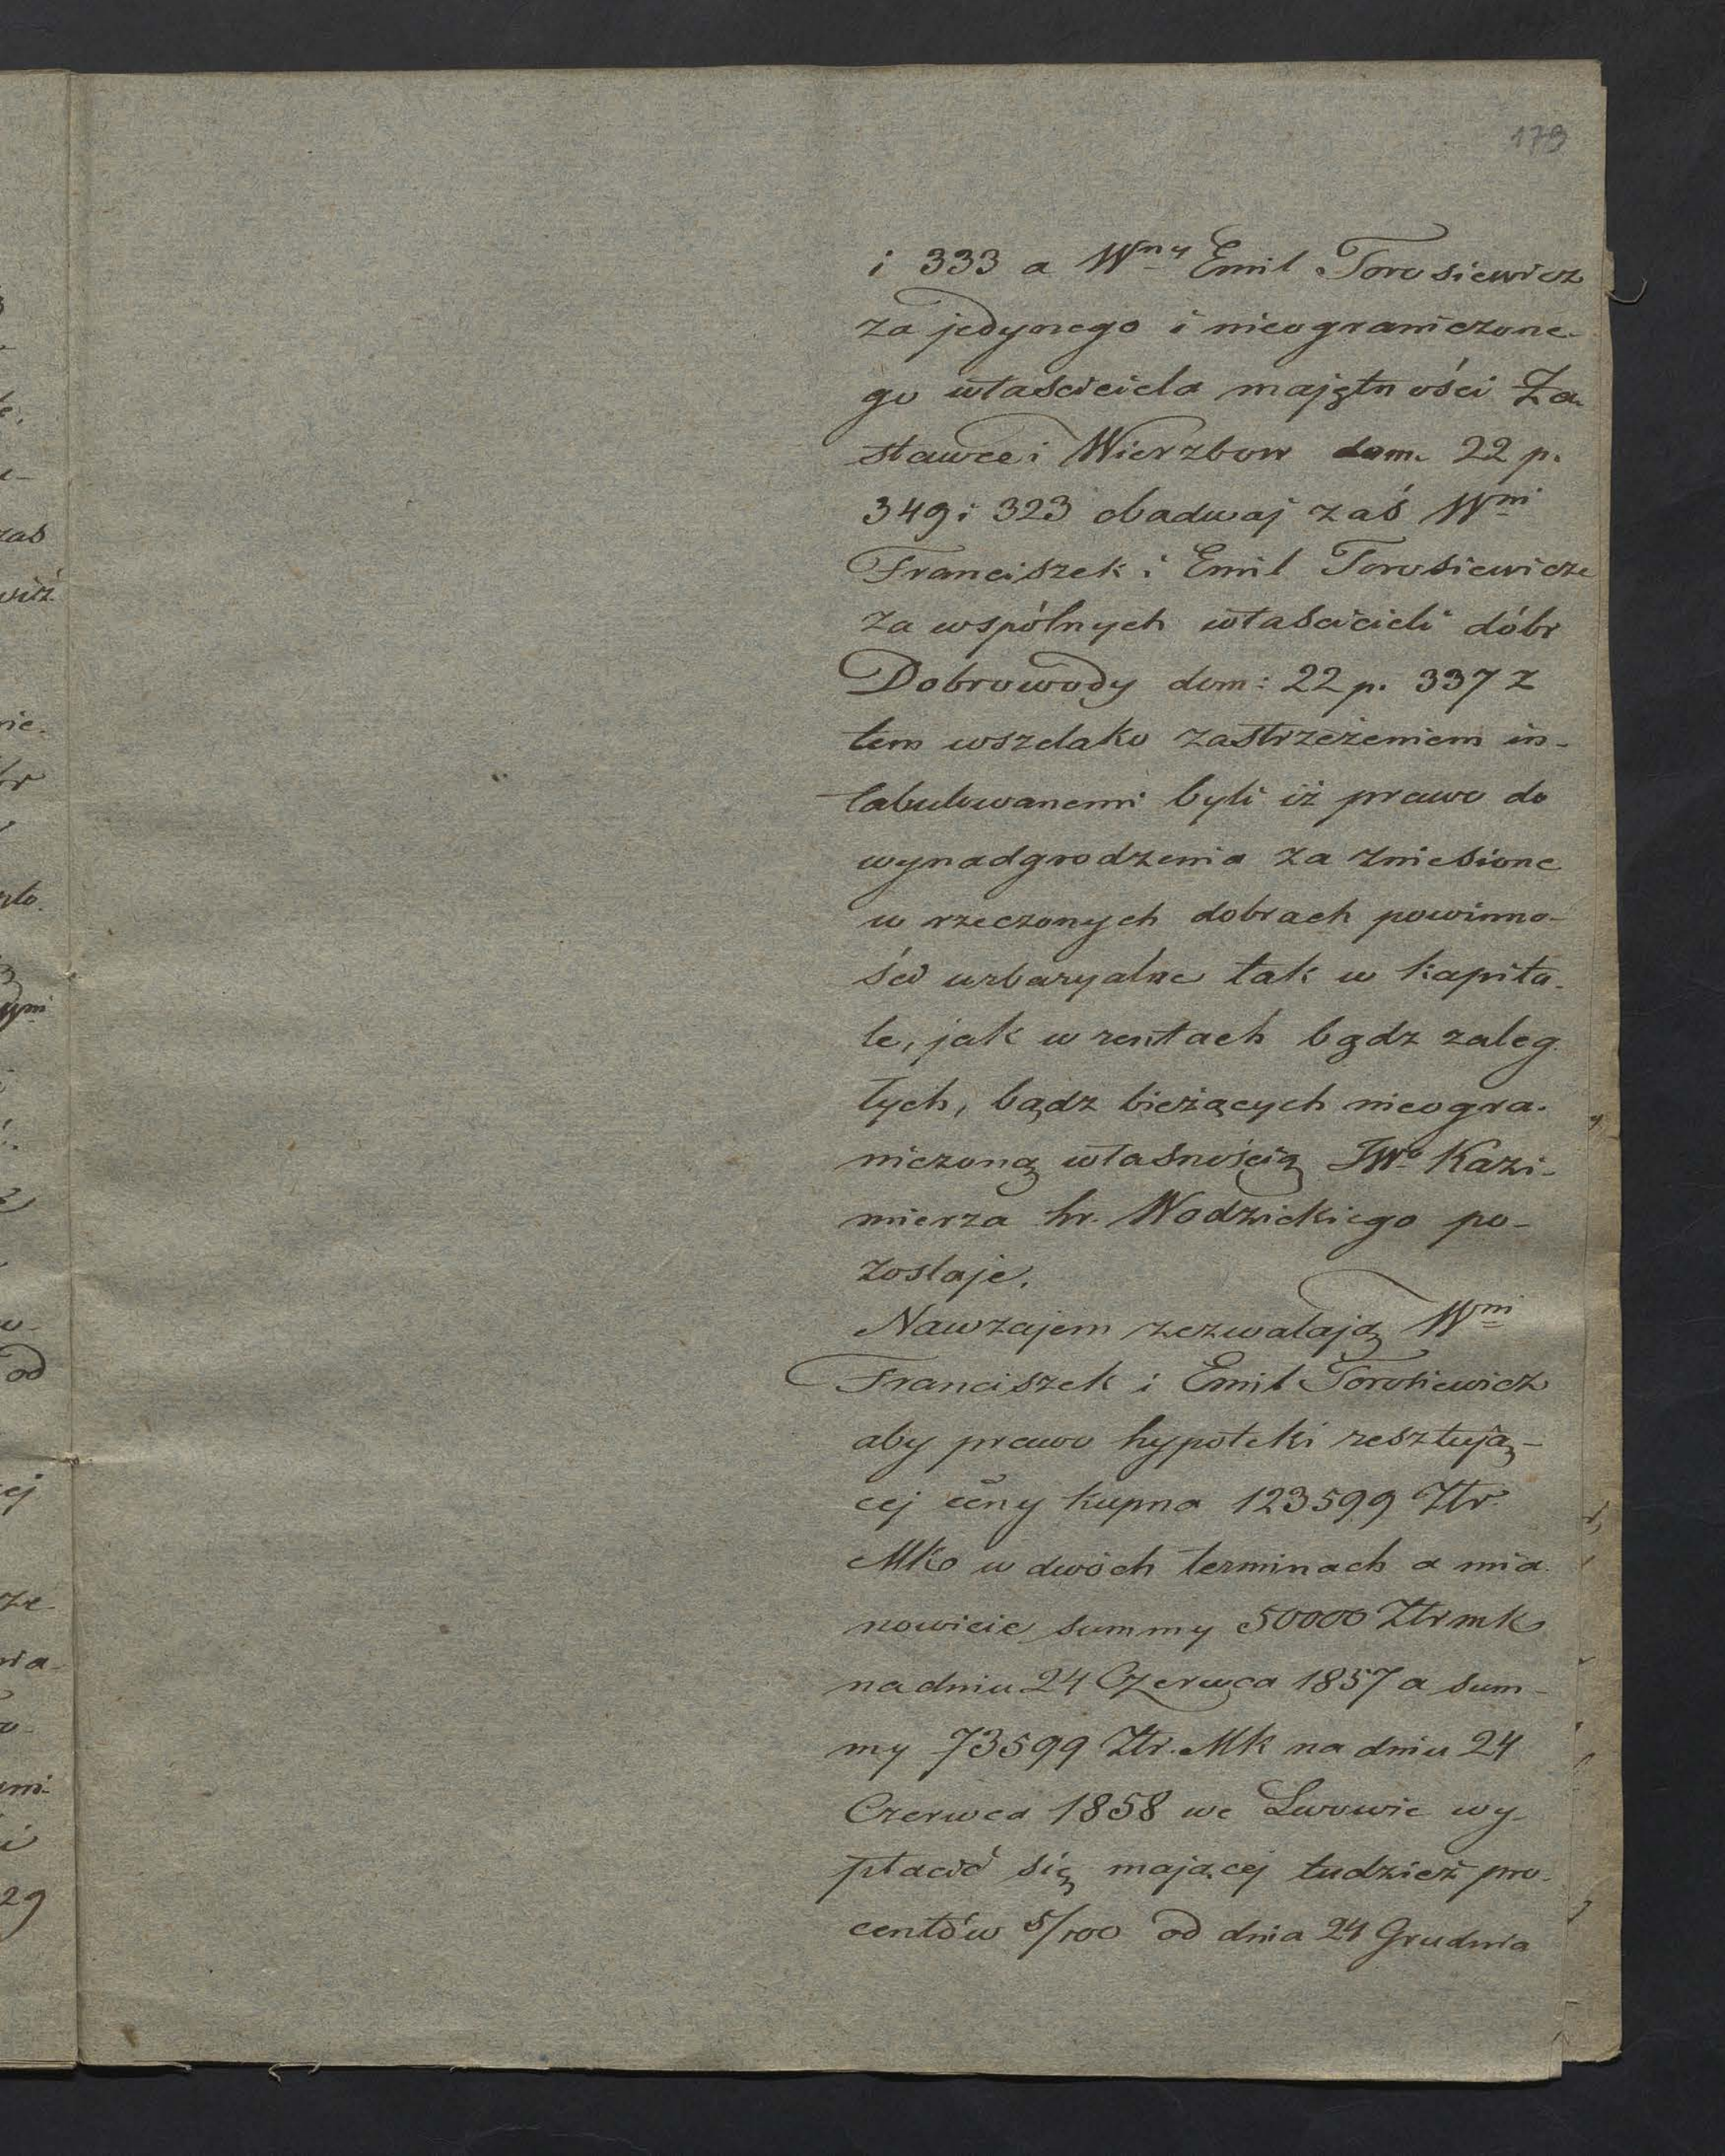 179
i 333 a W<sup>ny</sup> Emil Torosiewicz
za jedynego i nieograniczone-
go właściciela majętności Za-
stawce i Wierzbow dom. 22 p.
349 i 323 obadwaj zaś W<sup>ni</sup>
Franciszek i Emil Torosiewicze
za wspólnych właścicieli dóbr
Dobrowody dom: 22 p. 337 z
tem wszelako zastrzeżeniem in-
tabulowanemi byli iż prawo do
wynadgrodzenia za zniesione
w rzeczonych dobrach powinno-
ści urbaryalne tak w kapita-
le, jak w rentach bądz zaleg-
łych, bądz bieżących nieogra-
niczoną własnością JW<sup>o</sup> Kazi-
mierza hr. Wodzickiego po-
zostaje.
Nawzajem zezwalają W<sup>ni</sup>
Franciszek i Emil Torosiewicz
aby prawo hypoteki resztują-
cej ceny kupna 123599 Złr.
MK w dwóch terminach a mia-
nowicie summy 50000 Złr mk
na dniu 24 Czerwca 1857 a sum-
my 73599 Złr. MK na dniu 24
Czerwca 1858 we Lwowie wy-
płacić się mającej tudzież pro-
centów 5/100 od dnia 24 Grudnia